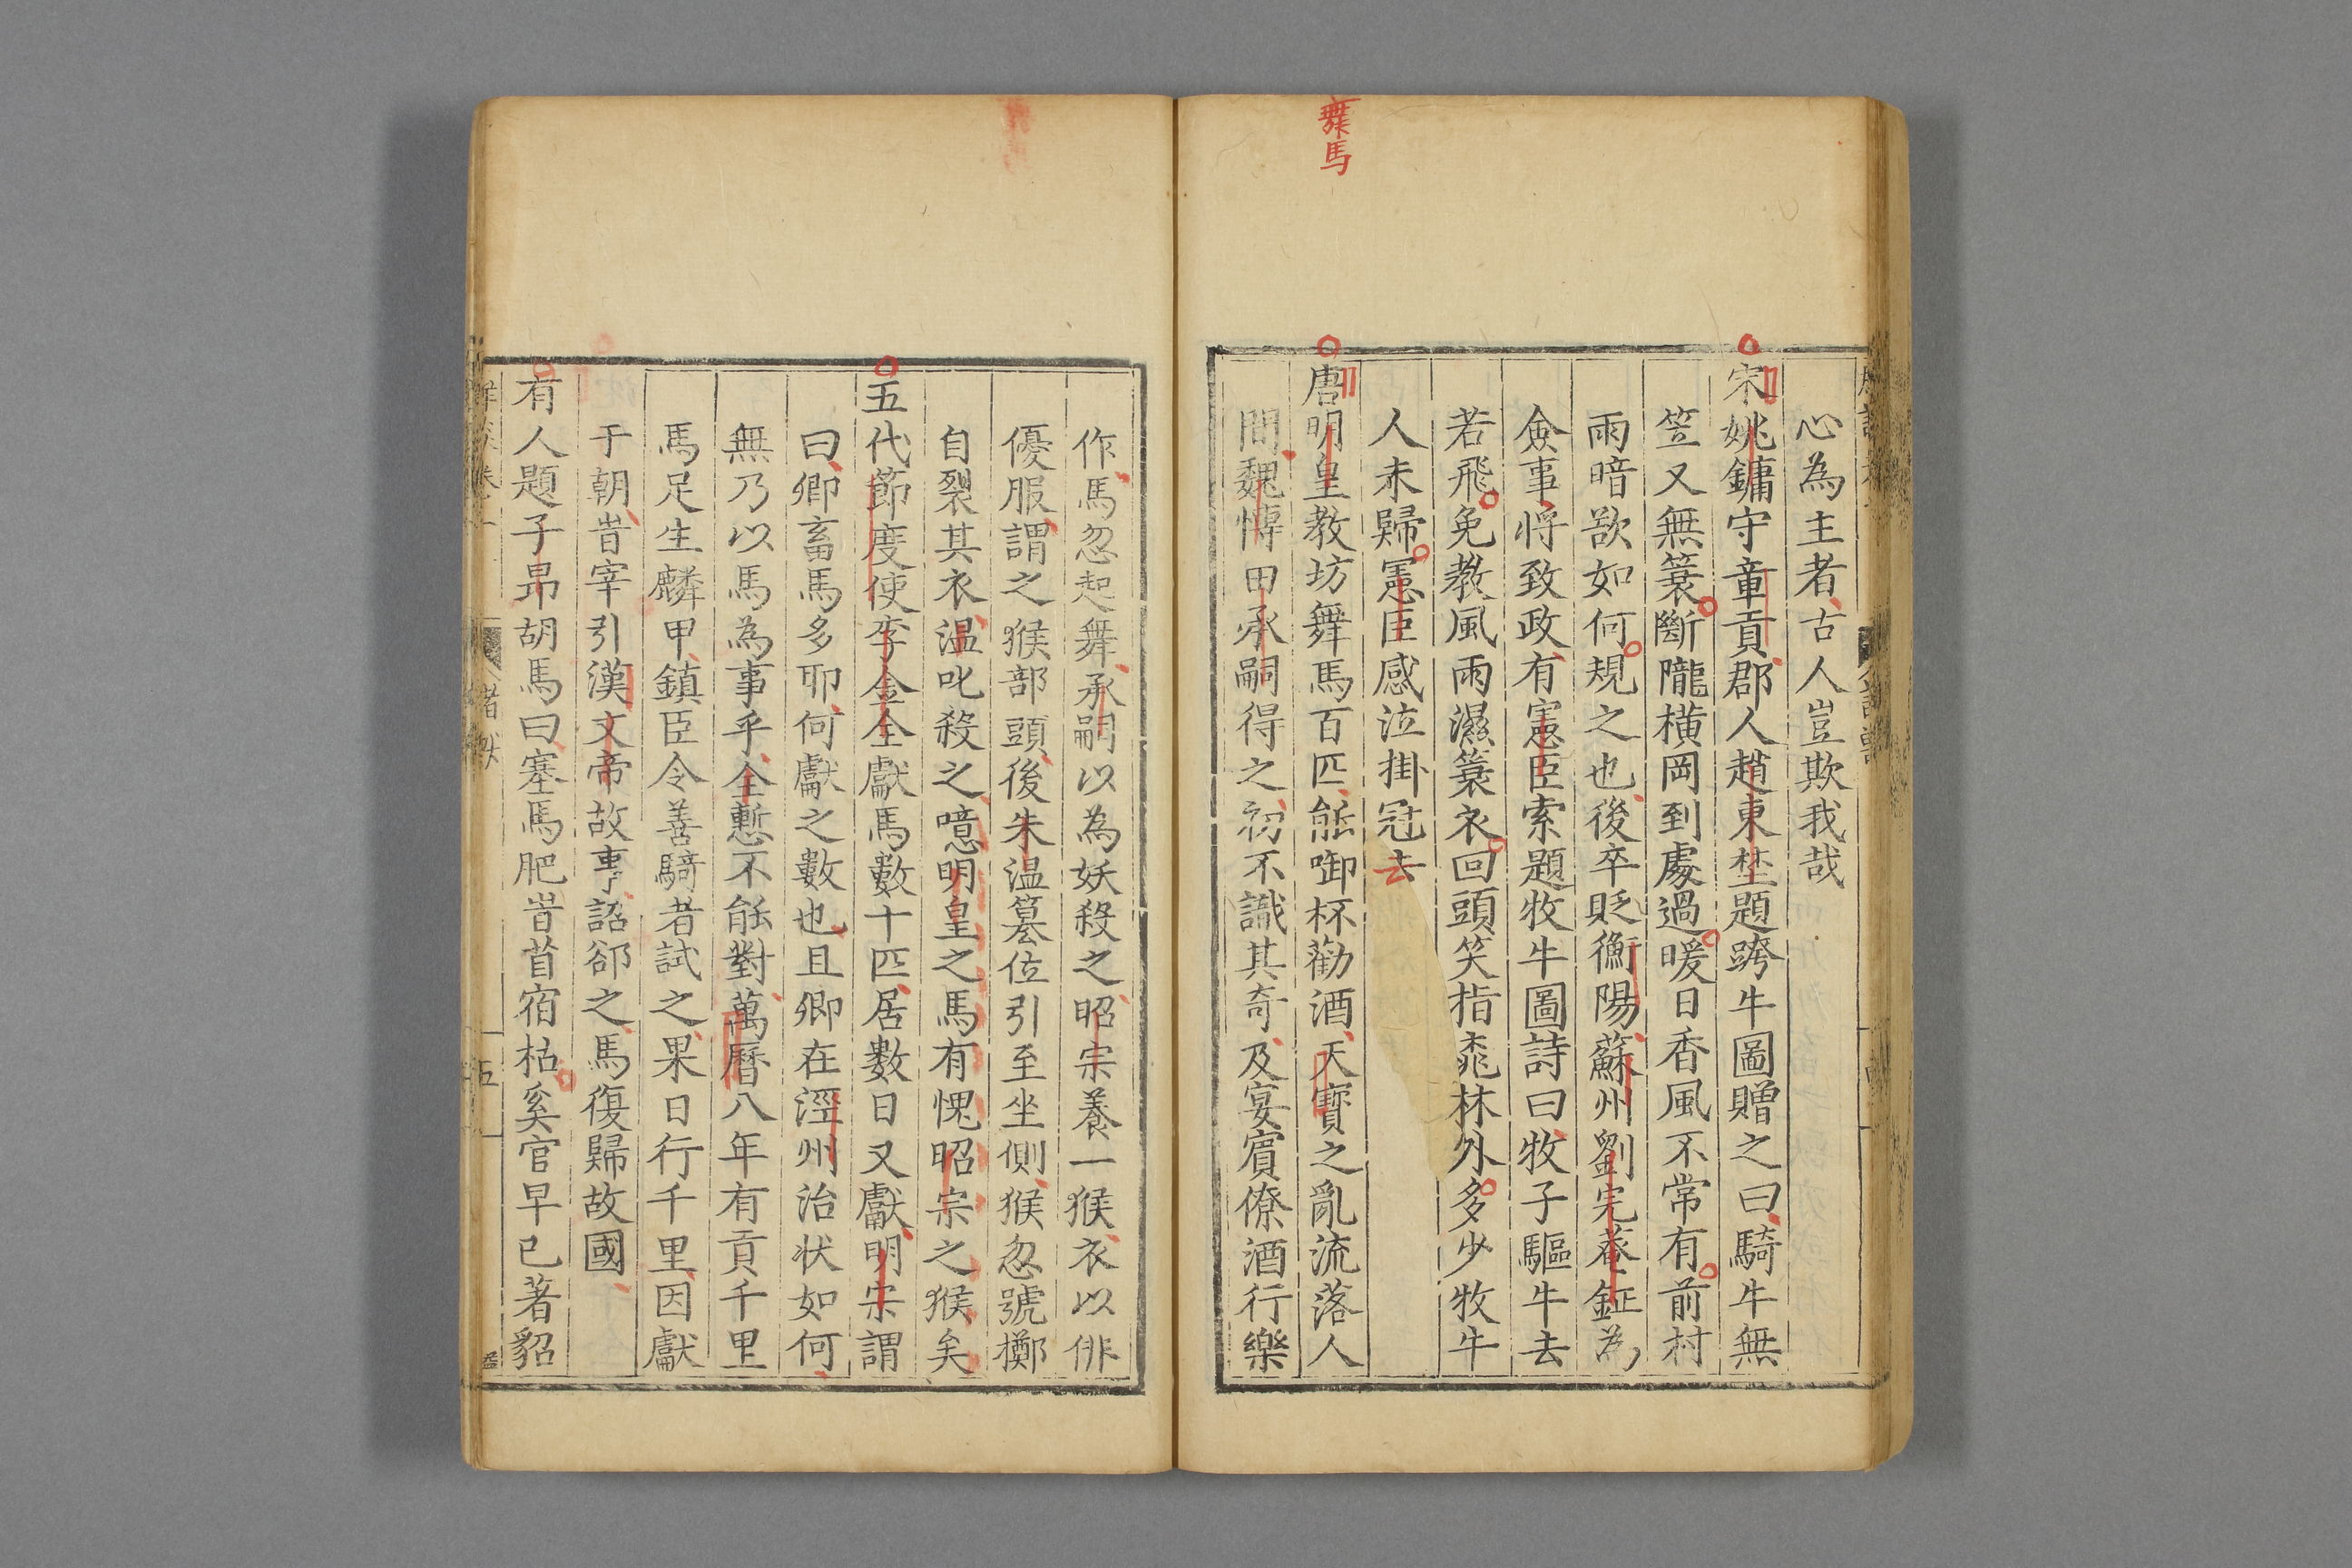 舞馬
心為主者古人豈欺我哉
宋姚鏞守章貢郡人趙東埜題跨牛圖贈之曰騎牛無
笠又無簑斷隴橫岡到處過暖日香風不常有前村
雨暗欲如何規之也後卒貶衡陽蘇州劉完菴鉦為
僉事將致政有憲臣索題牧牛圖詩曰牧子驅牛去
若飛免教風雨濕簑衣回頭笑指桃林外多少牧牛
人未歸憲臣感泣掛冠去
唐明皇教坊舞馬百匹能啣杯勸酒天寶之亂流落人
間魏博田承嗣得之初不識其奇及宴賓僚酒行樂
作馬忽起舞承嗣以為妖殺之昭宗養一猴衣以俳
優服謂之猴部頭後朱温篡位引至坐側猴忽號擲
自裂其衣温叱殺之噫明皇之馬有愧昭宗之猴矣
五代節度使李金全獻馬數十匹居數日又獻明宗謂
曰卿畜馬多耶何獻之數也且卿在涇州治狀如何
無乃以馬為事乎全慙不能對萬曆八年有貢千里
馬足生麟甲鎮臣令善騎者試之果日行千里因獻
于朝旹宰引漢文帝故事詔卻之馬復歸故國
有人題子昂胡馬曰塞馬肥旹苜宿枯奚官早已著貂
五